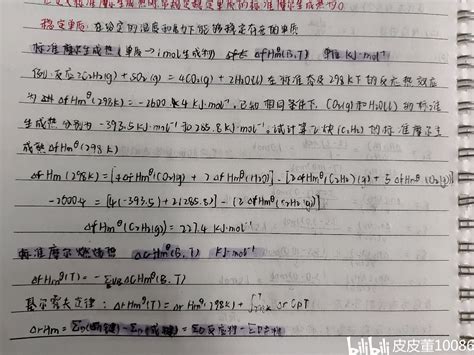 稳定单质: 在给定的温度和压力下能够稳定存在的单质
标准摩尔生成热 (单质→1mol生成物) ΔfHmθ(B,T) 单位 KJ·mol⁻¹
例: 反应 2C₂H₂(g) + 5O₂(g) = 4CO₂(g) + 2H₂O(l) 在标准态及298KT的反应热效应
为 ΔrHmθ(298K) = -2600.4 KJ·mol⁻¹, 已知相同条件下, CO₂(g)和H₂O(l)的标准
生成热分别为 -393.5KJ·mol⁻¹ 和 285.8KJ·mol⁻¹, 试计算乙炔(C₂H₂)的标准摩尔生
成热 ΔfHmθ(298K)
ΔrHm(298K) = [4ΔfHmθ(CO₂)(g) + 2ΔfHmθ(H₂O)] - [2ΔfHmθ(C₂H₂)(g) + 5ΔfHmθ(O₂)(g)]
-2600.4 = [4(-393.5) + 2(285.8)] - (2ΔfHmθ(C₂H₂)(g))
ΔfHmθ(C₂H₂)(g) = 227.4 KJ·mol⁻¹
标准摩尔燃烧热 ΔcHmθ(B,T) KJ·mol⁻¹
ΔrHmθ(T) = -ΣνBΔcHmθ(B,T)
基尔霍夫定律: ΔrHmθ(T) = ΔrHm(298K) +
ΔrHm =
bilibili 皮皮董10086